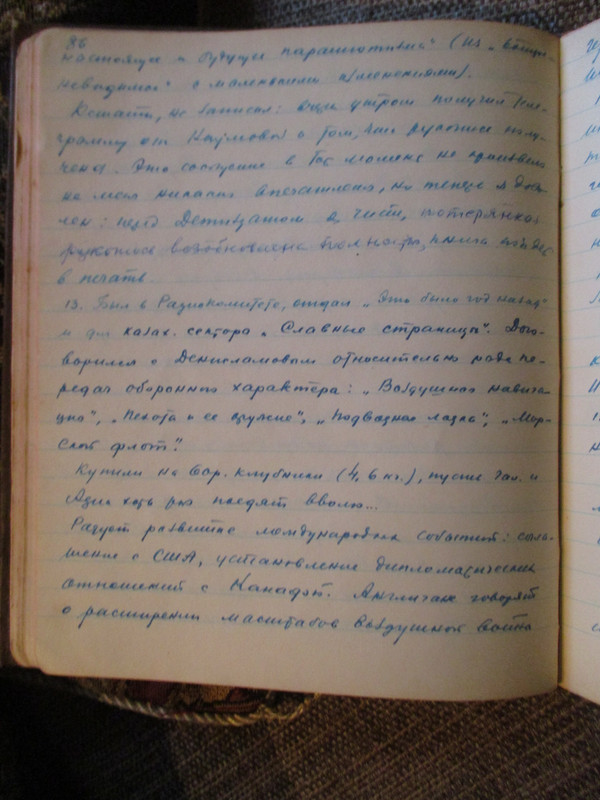 86
настоящее и будущее парашютизма" (из „Бойцы-
невидимки" с маленькими изменениями).
Кстати, не записал: вчера утром получил теле-
грамму от Наумовой о том, что рукопись полу-
чена. Это сообщение в тот момент не произвело
на меня никакого впечатления, но теперь я дово-
лен: через Детиздатом я чист, потерянная
рукопись возобновлена полностью, книга пойдет
в печать.
13. Был в Радиокомитете, отдал „Это было год назад"
и для казах. сектора „Славные страницы". Дого-
ворился с Денисламовым относительно ряда пе-
редач оборонного характера: „Воздушная навига-
ция", „Пехота и ее оружие", „Подводная лодка", „Мор-
ской флот".
Купили на 60 р. клубники (4,6 кг.), пусть Гал. и
Адик хоть раз поедят вволю...
Радует развитие международных событий: согла-
шение с США, установление дипломатических
отношений с Канадой. Англичане говорят
о расширении масштабов воздушной войны